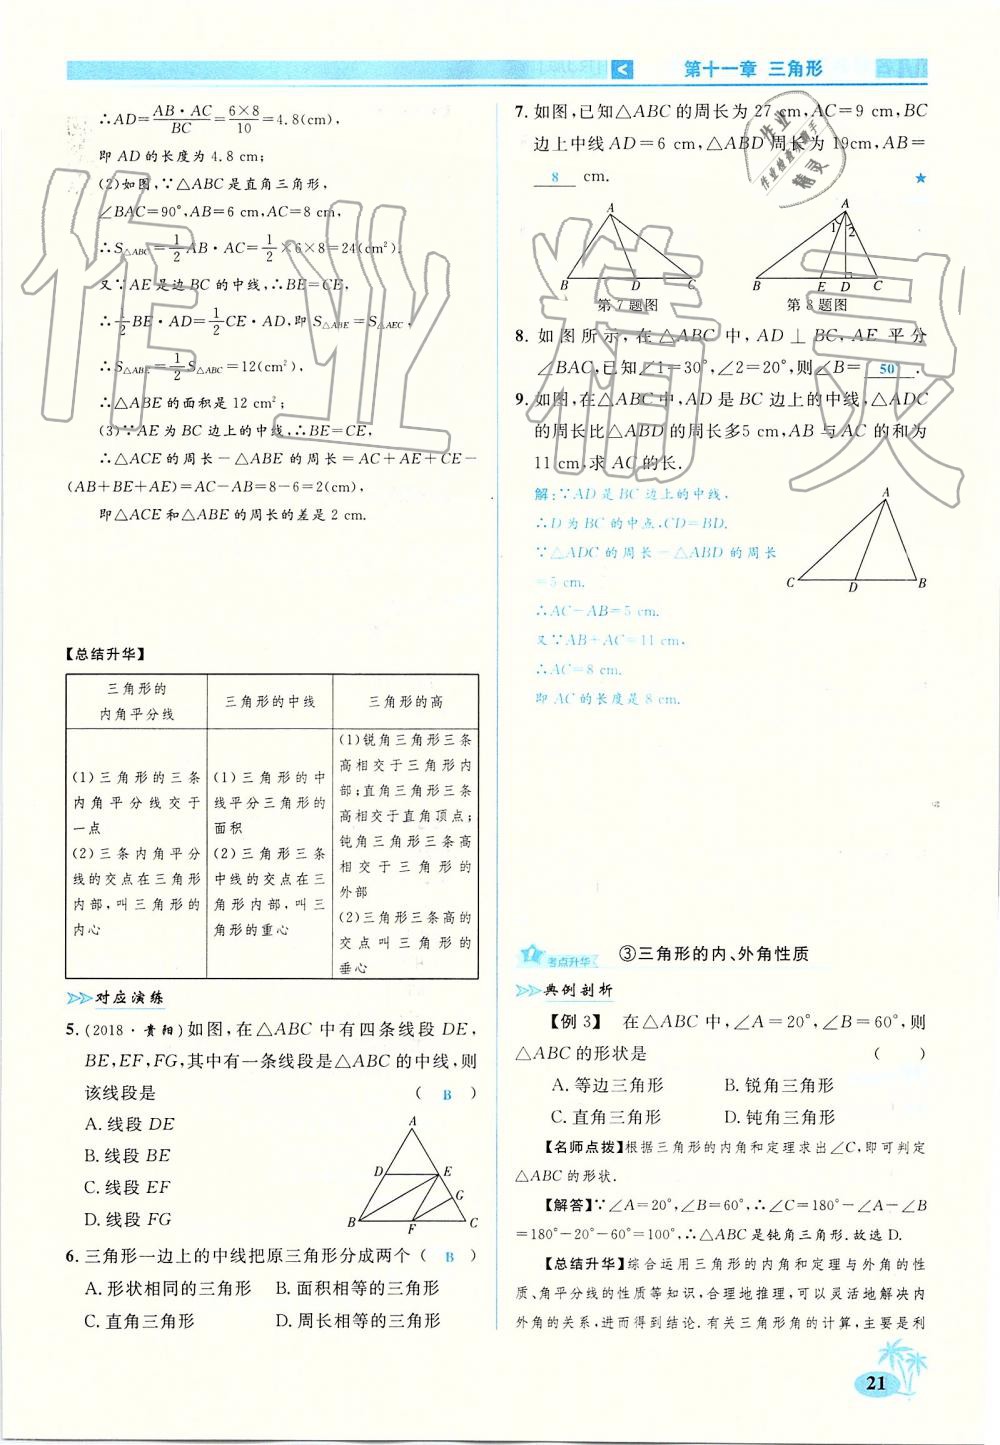 第十一章 三角形
∴AD=AB·AC/BC=6×8/10=4.8(cm),
即 AD 的长度为 4.8 cm;
(2)如图,∵△ABC 是直角三角形,
∠BAC=90°,AB=6 cm,AC=8 cm,
∴S△ABC=1/2AB·AC=1/2×6×8=24(cm²).
又∵AE 是边 BC 的中线,∴BE=CE,
∴1/2BE·AD=1/2CE·AD,即 S△ABE=S△AEC,
∴S△ABE=1/2S△ABC=12(cm²),
∴△ABE 的面积是 12 cm²;
(3)∵AE 为 BC 边上的中线,∴BE=CE,
∴△ACE 的周长-△ABE 的周长=AC+AE+CE-
(AB+BE+AE)=AC-AB=8-6=2(cm),
即△ACE 和△ABE 的周长的差是 2 cm.
【总结升华】
三角形的
内角平分线
三角形的中线
三角形的高
(1)三角形的三条
内角平分线交于
一点
(2)三条内角平分
线的交点在三角形
内部,叫三角形的
内心
(1)三角形的中
线平分三角形的
面积
(2)三角形三条
中线的交点在三
角形内部,叫三
角形的重心
(1)锐角三角形三条
高相交于三角形内
部;直角三角形三条
高相交于直角顶点;
钝角三角形三条高
相交于三角形的
外部
(2)三角形三条高的
交点叫三角形的
垂心
对应演练
5.(2018·贵阳)如图,在△ABC 中有四条线段 DE,
BE,EF,FG,其中有一条线段是△ABC 的中线,则
该线段是 ( B )
A.线段 DE
B.线段 BE
C.线段 EF
D.线段 FG
A
D E
G
B F C
6.三角形一边上的中线把原三角形分成两个 ( B )
A.形状相同的三角形 B.面积相等的三角形
C.直角三角形 D.周长相等的三角形
7.如图,已知△ABC 的周长为 27 cm,AC=9 cm,BC
边上中线 AD=6 cm,△ABD 周长为 19cm,AB=
8 cm. ★
A
B D C
第 7 题图
A
1 2
B E D C
第 8 题图
8.如图所示,在△ABC 中,AD⊥BC,AE 平分
∠BAC,已知∠1=30°,∠2=20°,则∠B= 50° .
9.如图,在△ABC 中,AD 是 BC 边上的中线,△ADC
的周长比△ABD 的周长多5 cm,AB 与 AC 的和为
11 cm,求 AC 的长.
解:∵AD 是 BC 边上的中线,
∴D 为 BC 的中点,CD=BD.
∵△ADC 的周长-△ABD 的周长
=5 cm.
∴AC-AB=5 cm.
又∵AB+AC=11 cm,
∴AC=8 cm.
即 AC 的长度是 8 cm.
A
C D B
考点升华 ③三角形的内、外角性质
典例剖析
【例 3】 在△ABC 中,∠A=20°,∠B=60°,则
△ABC 的形状是 ( )
A.等边三角形 B.锐角三角形
C.直角三角形 D.钝角三角形
【名师点拨】根据三角形的内角和定理求出∠C,即可判定
△ABC 的形状.
【解答】∵∠A=20°,∠B=60°,∴∠C=180°-∠A-∠B
=180°-20°-60°=100°,∴△ABC 是钝角三角形.故选 D.
【总结升华】综合运用三角形的内角和定理与外角的性
质、角平分线的性质等知识,合理地推理,可以灵活地解决内
外角的关系,进而得到结论.有关三角形角的计算,主要是利
21
作业精灵
作业
作业检查小助手
精灵